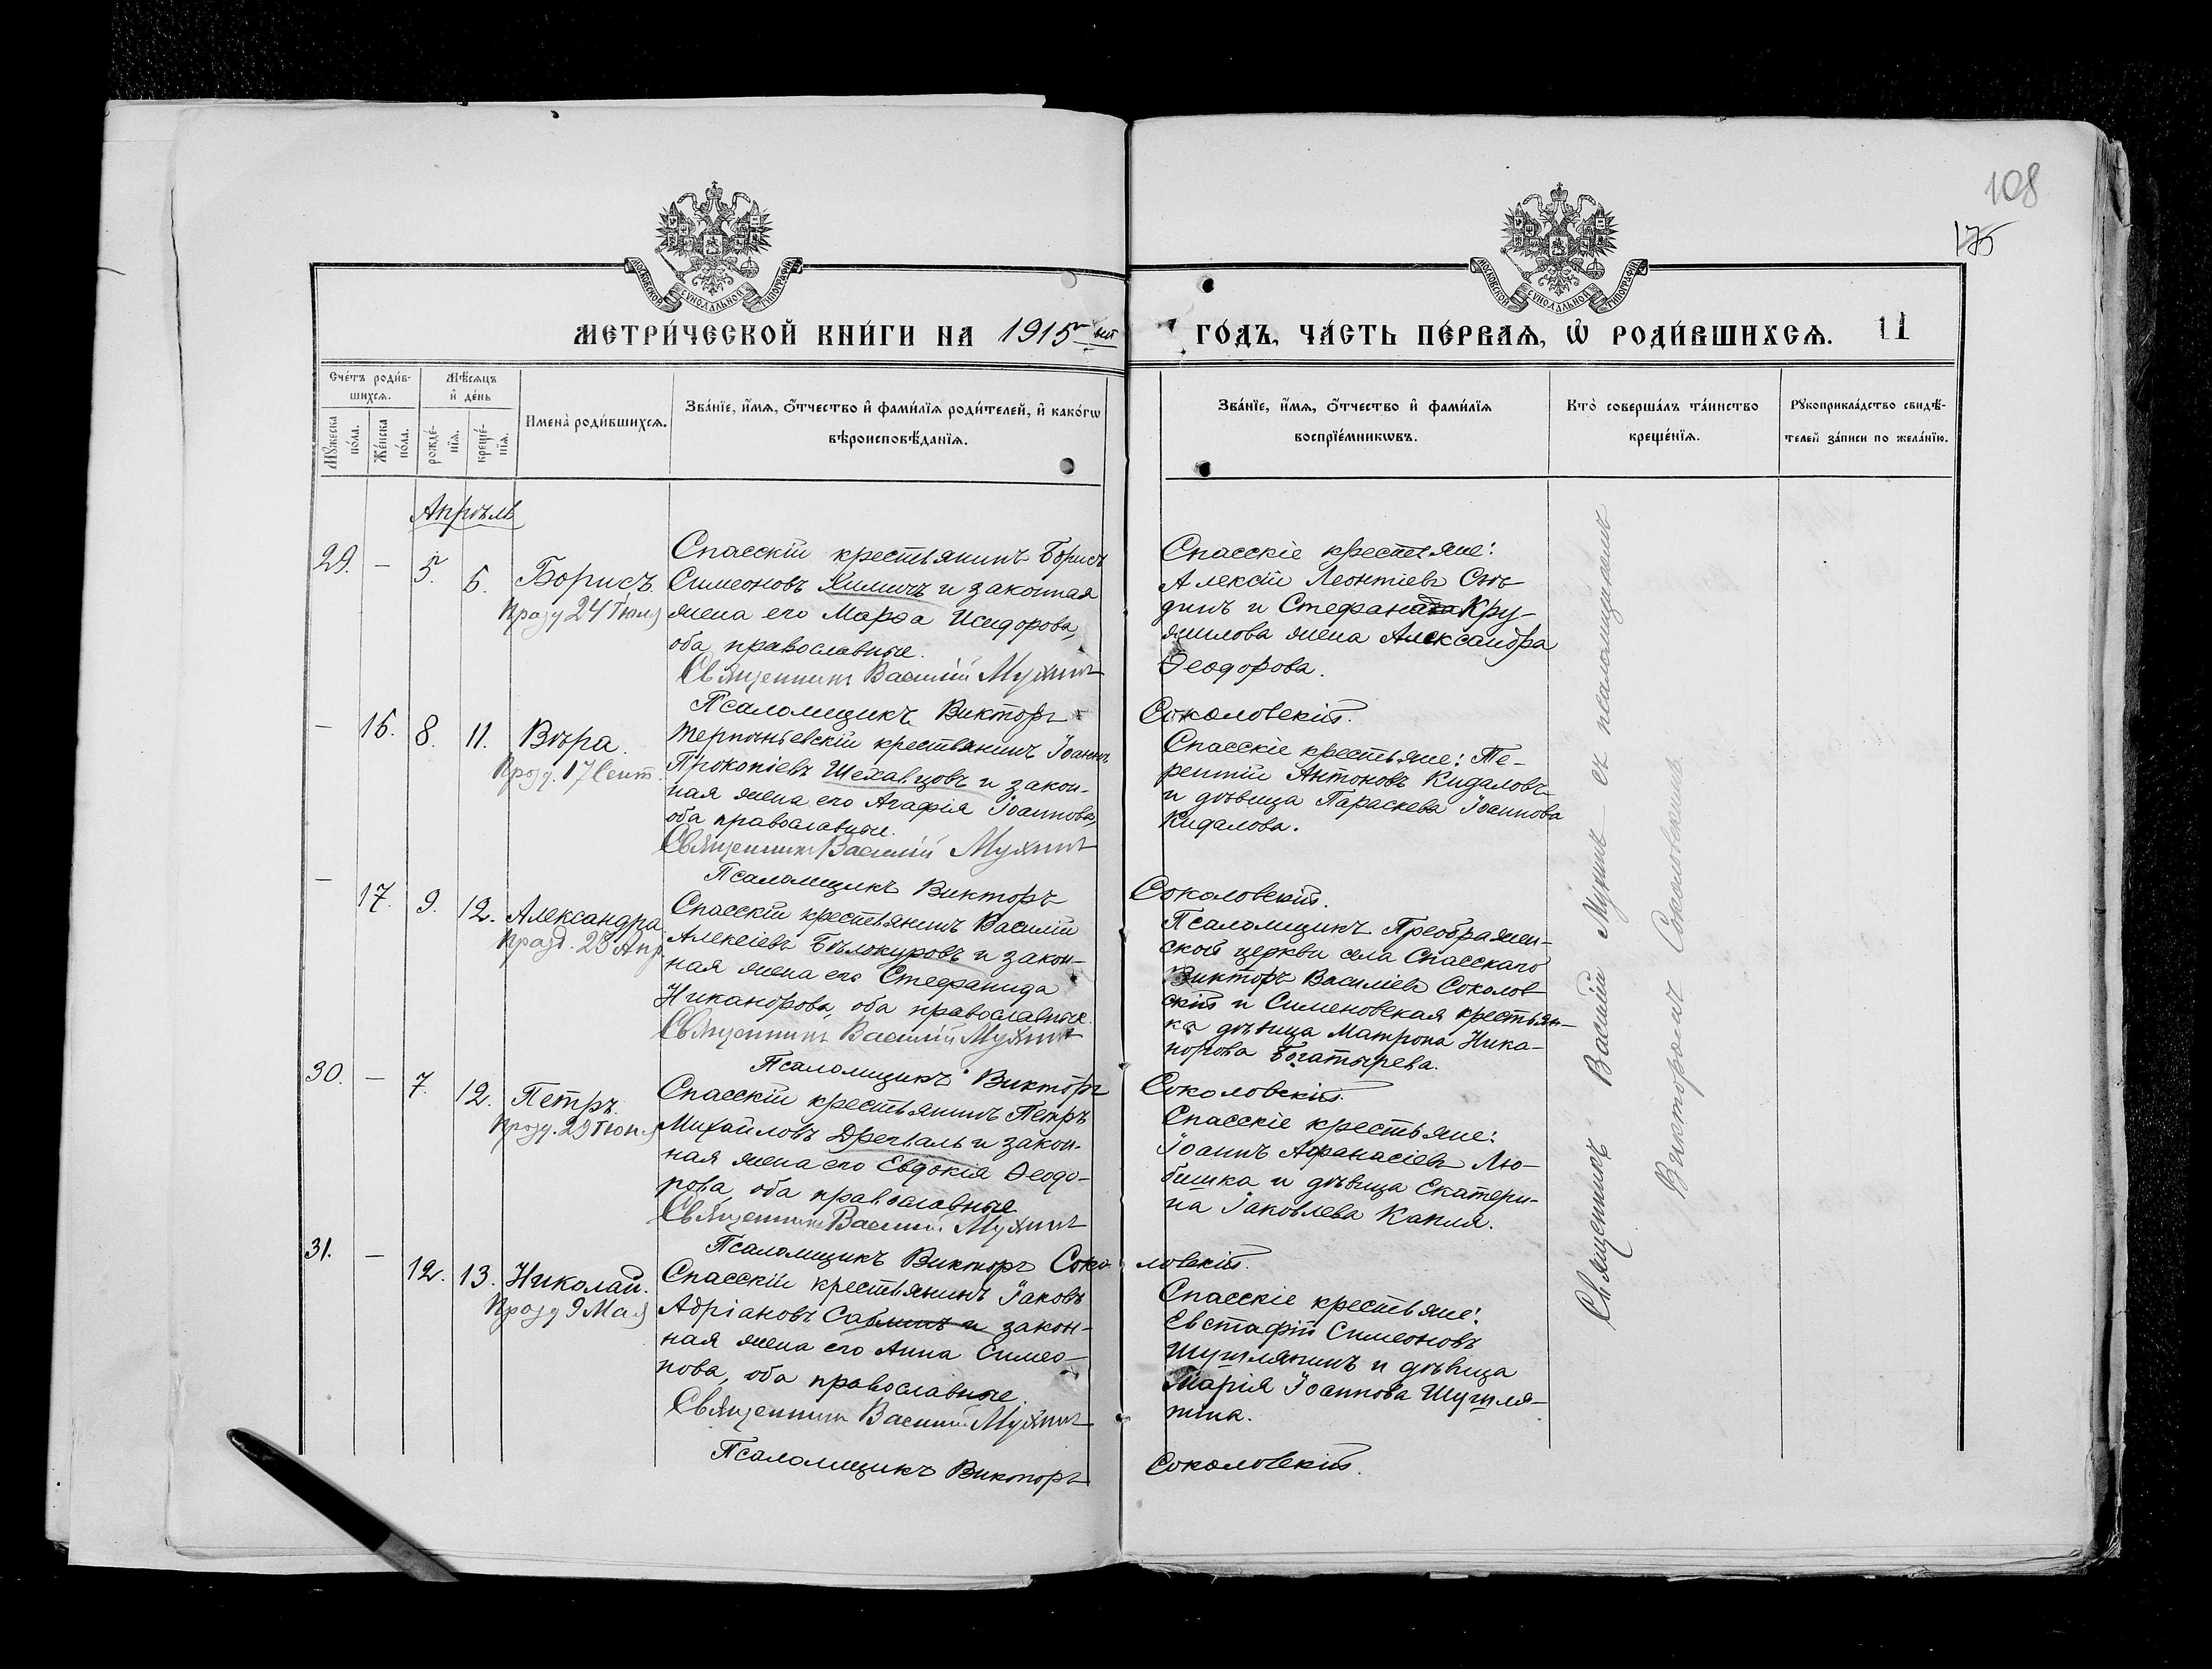 108
175
МОСКОВСКОЙ СУНОДАЛЬНОЙ ТИПОГРАФІИ
МОСКОВСКОЙ СУНОДАЛЬНОЙ ТИПОГРАФІИ
МЕТРИ́ЧЕСКОЙ КНИ́ГИ НА 1915-ый
ГО́ДЪ, ЧА́СТЬ ПЕ́РВАѦ, Ѡ҆ РОДИ́ВШИХСѦ. 11
Сче́тъ роди́в-
шихсѧ.
Мѣ́сѧцъ
и҆ де́нь
Мꙋ́жеска
по́ла.
Же́нска
по́ла.
рожде́-
нїѧ.
креще́-
нїѧ.
И҆мена̀ роди́вшихсѧ.
Зва́нїе, и҆́мѧ, ѻ҆́тчество и҆ фамѝлїѧ роди́телей, и҆ како́гѡ
вѣроисповѣ́данїѧ.
Зва́нїе, и҆́мѧ, ѻ҆́тчество и҆ фами́лїѧ
воспрїе́мникѡвъ.
Кто̀ соверша́лъ та́инство
креще́нїѧ.
Рꙋкоприкла́дство свидѣ́-
телей за́писи по жела́нїю.
Апрѣль
29. — 5. 5. Борисъ.
Празд 24 Іюля
Спасскій крестьянинъ Борисъ
Симеоновъ Химичъ и законная
жена его Марѳа Исидорова,
оба православные.
Священникъ Василій Мухинъ
Псаломщикъ Викторъ
Спасскіе крестьяне:
Алексій Леонтіевъ Сте-
динъ и Стефана Кру-
жилова жена Александра
Ѳеодорова.
Соколовскій.
— 16. 8. 11. Вѣра.
Празд. 17 Сент.
крестьянинъ Іоаннъ
Прокопіевъ Шехавцовъ и закон-
ная жена его Агафія Іоаннова,
оба православные.
Священникъ Василій Мухинъ
Псаломщикъ Викторъ
Спасскіе крестьяне: Те-
рентій Антоновъ Кидаловъ
и дѣвица Параскева Іоаннова
Кидалова.
Соколовскій.
— 17. 9. 12. Александра.
Празд. 23 Апр.
Спасскій крестьянинъ Василій
Алексіевъ Бѣлокуровъ и закон-
ная жена его Стефанида
Никанорова, оба православные.
Священникъ Василій Мухинъ
Псаломщикъ Викторъ
Псаломщикъ Преображен-
ской церкви села Спасскаго
Викторъ Василіевъ Соколов-
скій и Симеоновская крестьян-
ка дѣвица Матрона Ника-
норова Богатырева.
Соколовскій.
30. — 7. 12. Петръ.
Празд. 29 Іюня
Спасскій крестьянинъ Петръ
Михайловъ Дрегваль и закон-
ная жена его Евдокія Ѳеодо-
рова, оба православные.
Священникъ Василій Мухинъ
Псаломщикъ Викторъ Соко-
Спасскіе крестьяне:
Іоаннъ Афанасіевъ Лю-
бишка и дѣвица Екатери-
на Іаковлева Капля.
ловскій.
31. — 12. 13. Николай.
Празд 9 Мая
Спасскій крестьянинъ Іаковъ
Адріановъ Саблинъ и закон-
ная жена его Анна Симео-
нова, оба православные.
Священникъ Василій Мухинъ
Псаломщикъ Викторъ
Спасскіе крестьяне:
Евстафій Симеоновъ
Шушлянинъ и дѣвица
Марія Іоаннова Шушля-
нина.
Соколовскій.
Священникъ Василій Мухинъ съ псаломщикомъ
Викторомъ Соколовскимъ.